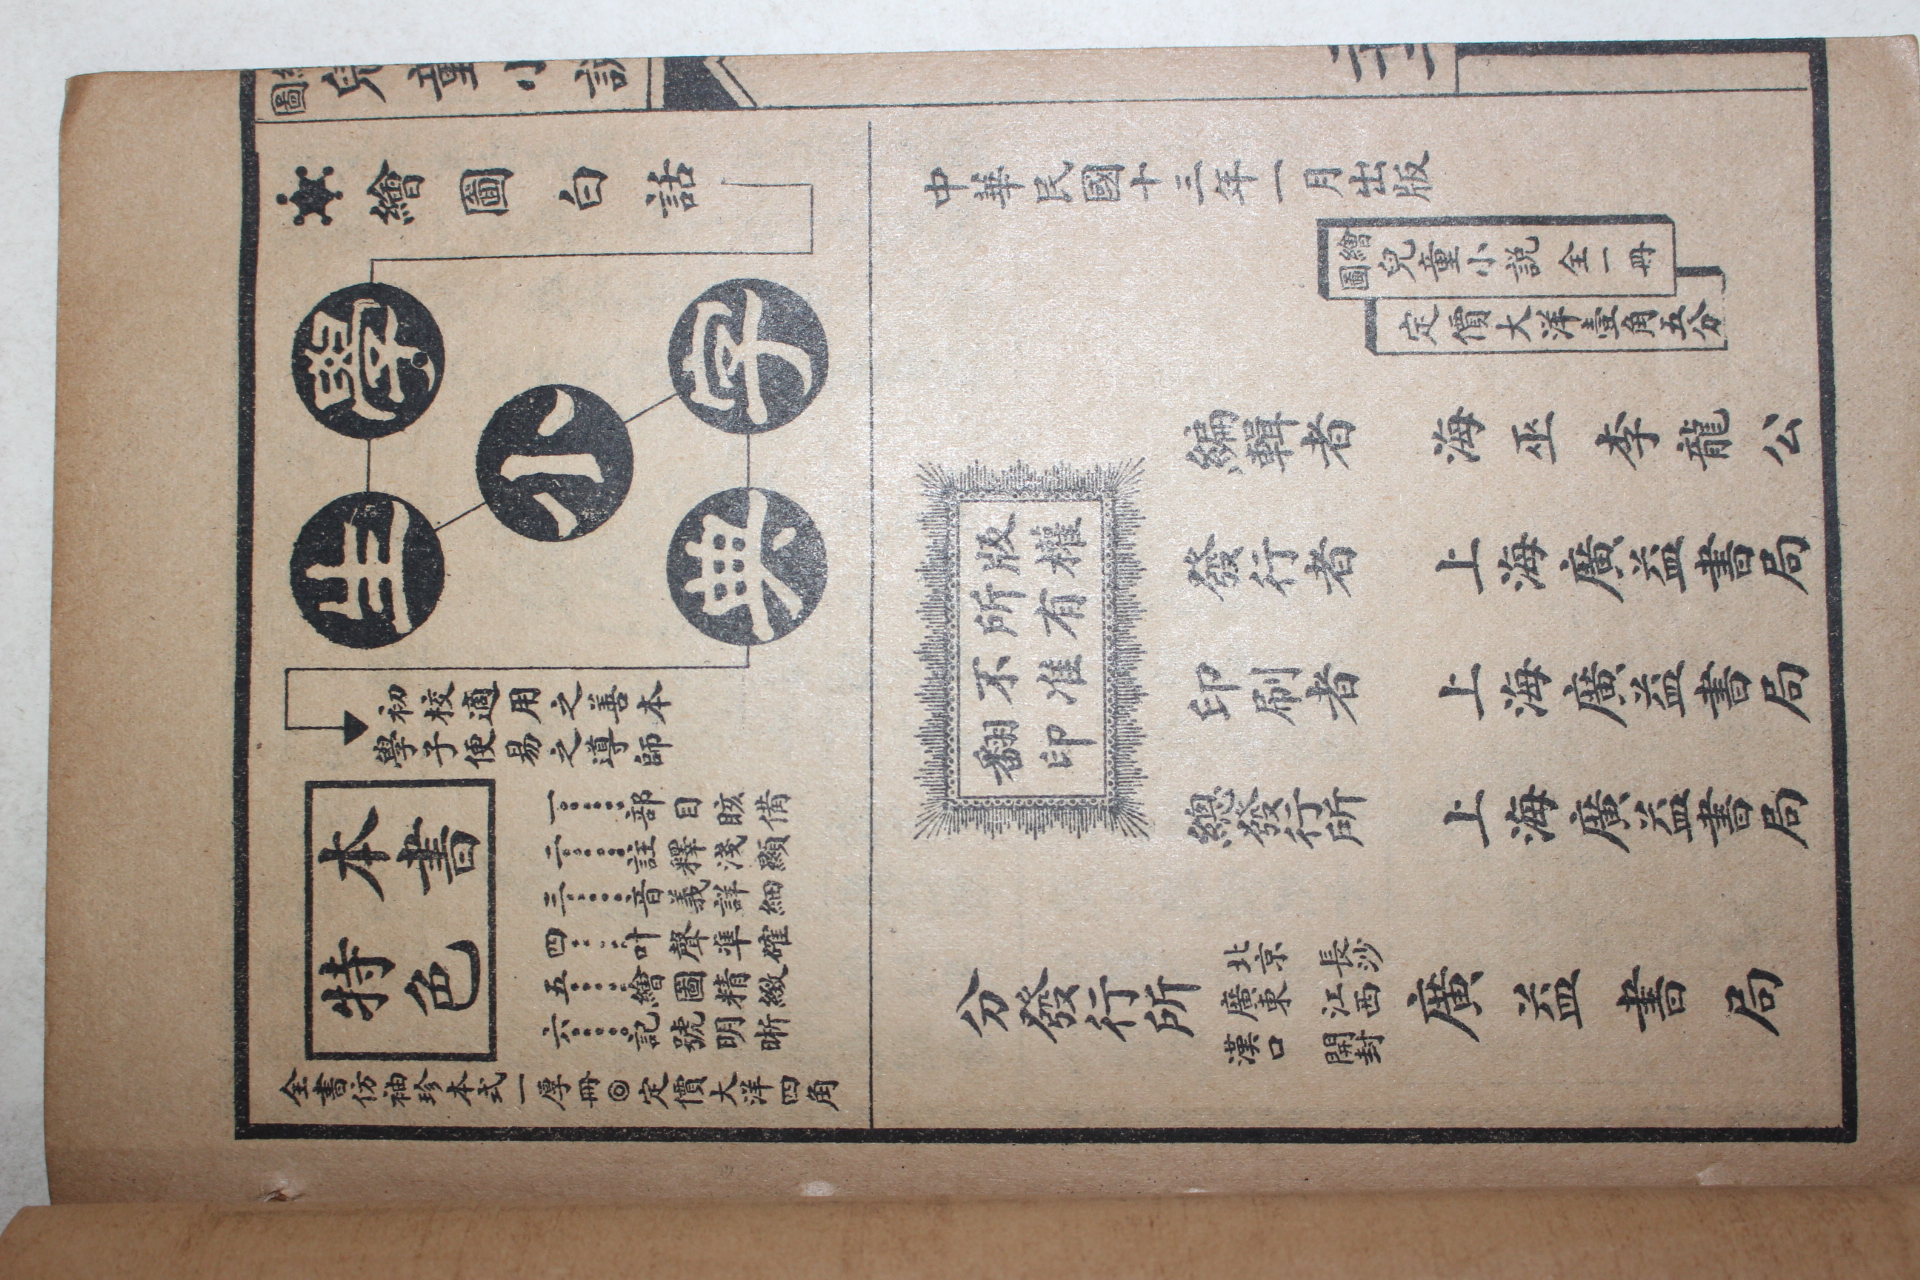 圖 兒童小說
繪圖白話
學生小字典
初校適用之善本
學子便易之導師
本書
特色
一……部目賅備
二……註釋淺顯
三……音義詳細
四……叶聲準確
五……繪圖精緻
六……記號明晰
全書仿袖珍本式一厚冊◎定價大洋四角
中華民國十三年一月出版
繪圖 兒童小説 全一冊
定價大洋壹角五分
編輯者 海巫李龍公
版權
所有
不准
翻印
發行者 上海廣益書局
印刷者 上海廣益書局
總發行所 上海廣益書局
分發行所 北京 長沙 廣東 江西 漢口 開封 廣益書局